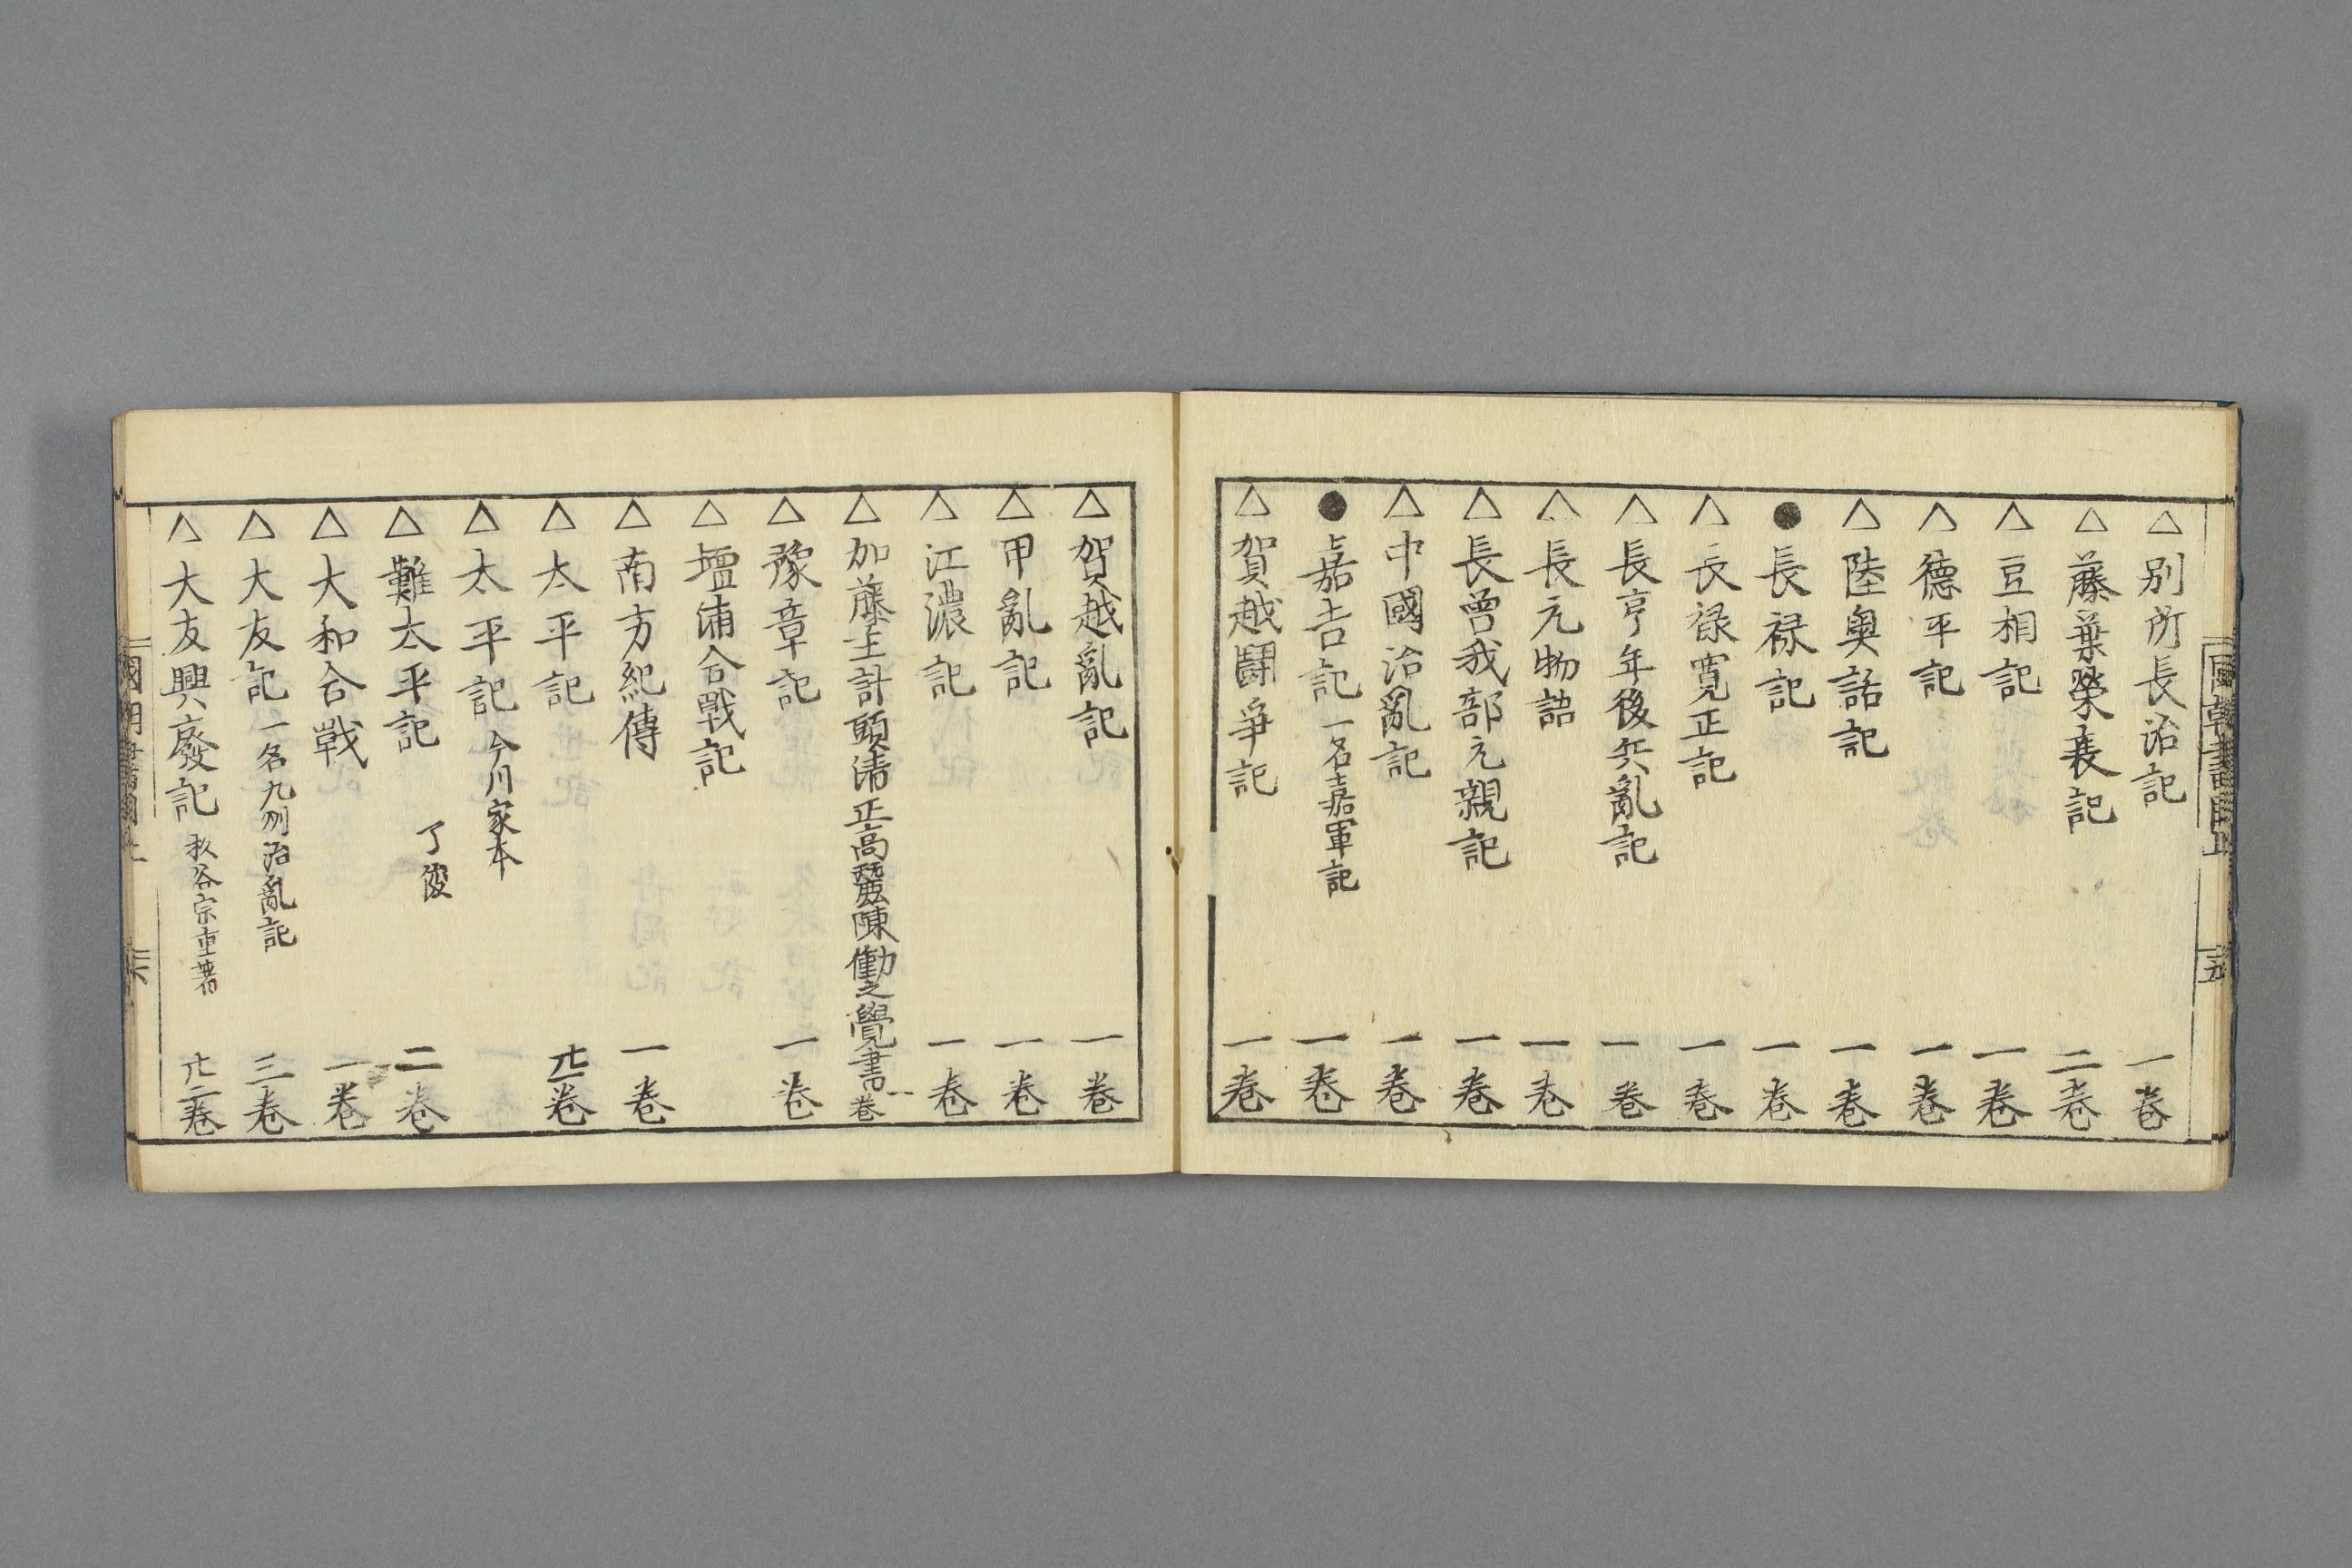 △別所長治記 一卷
△藤葉榮衰記 二卷
△豆相記 一卷
△德平記 一卷
△陸奥話記 一卷
●長禄記 一卷
△長禄寛正記 一卷
△長享年後兵亂記 一卷
△長元物語 一卷
△長曽我部元親記 一卷
△中國治亂記 一卷
●嘉吉記 一名嘉軍記 一卷
△賀越鬪爭記 一卷
△賀越亂記 一卷
△甲亂記 一卷
△江濃記 一卷
△加藤主計頭清正高麗陳働之覺書 一卷
△豫章記 一卷
△壇浦合戰記
△南方紀傳 一卷
△太平記 卌一卷
△太平記 今川家本
△難太平記 了俊 二卷
△大和合戰 一卷
△大友記 一名九州治亂記 三卷
△大友興廢記 杦谷宗重著 廿二卷